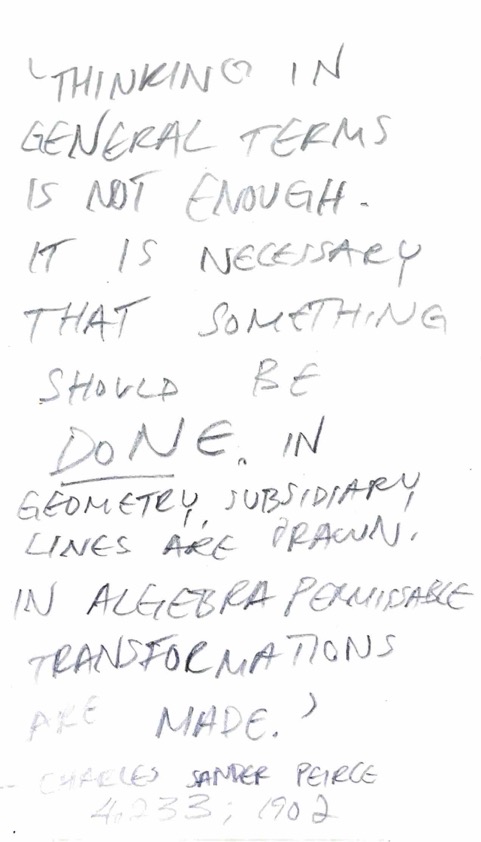 'THINKING IN
GENERAL TERMS
IS NOT ENOUGH.
IT IS NECESSARY
THAT SOMETHING
SHOULD BE
DONE. IN
GEOMETRY, SUBSIDIARY
LINES ARE DRAWN.
IN ALGEBRA PERMISSABLE
TRANSFORMATIONS
ARE MADE.'
-- CHARLES SANDER PEIRCE
4.233; 1902